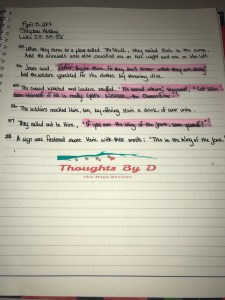 April 15, 2017
Luke 23: 33-38
33 When they came to a place called "The Skull", they nailed Him to the cross.
And the criminals were also crucified one on His right and one on His left.
34 Jesus said, "Father forgive them for they don't know what they are doing".
And the soldiers gambled for His clothes by throwing dice.
35 The crowd watched and leaders scoffed. "He saved others," they said, "Let Him
save Himself if He is really God's Messiah, the Chosen One."
36 The soldiers mocked Him, too, by offering Him a drink of sour wine.
37 They called out to Him, "If you are the King of the Jews, save yourself!"
38 A sign was fastened above Him with these words: "This is the King of the Jews."
Thoughts By D